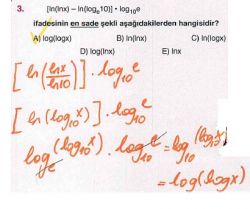 3. [ln(lnx) – ln(logₑ10)] • log₁₀e
ifadesinin en sade şekli aşağıdakilerden hangisidir?
A) log(logx) B) ln(lnx) C) ln(logx)
D) log(lnx) E) lnx
[ln(lnx/ln10)] · log₁₀e
[ln(log₁₀x)] · log₁₀e
logₑ(log₁₀x) · log₁₀e = log₁₀(log₁₀x)
= log(logx)